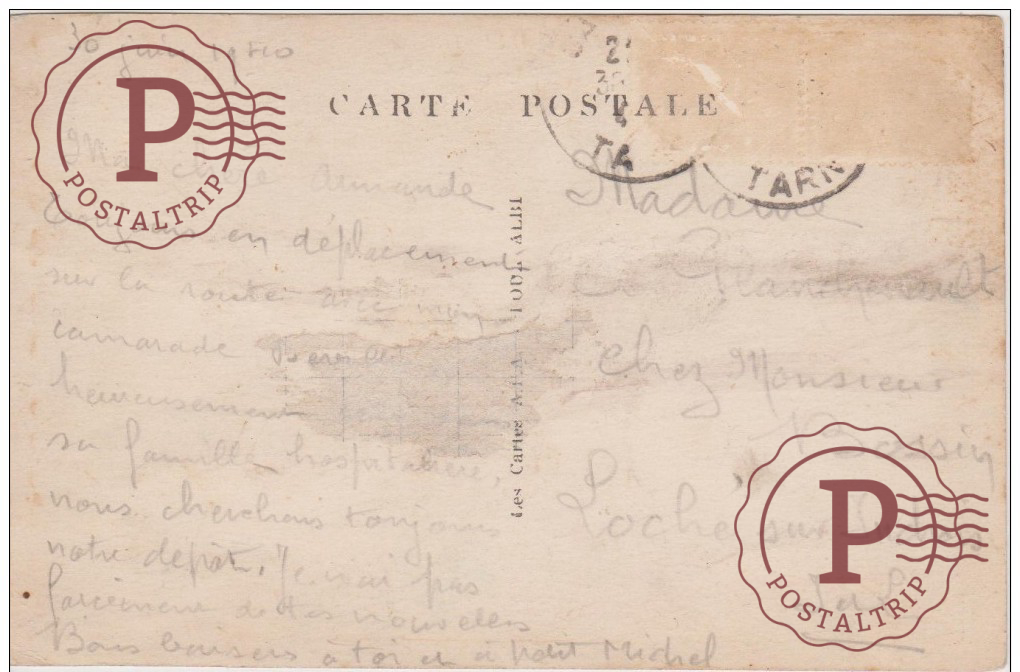 30 juin 1940
CARTE POSTALE
Ma chère Armande
Toujours en déplacement
sur la route avec mon
camarade
heureusement
sa famille hospitalière,
nous cherchons toujours
notre dépôt. Je n'ai pas
forcément de tes nouvelles
Bons baisers à toi et à petit Michel
Madame
chez Monsieur
Bossin
Loché sur Indrois
I et L
TARN
TA
Les Cartes APA POUX ALBI
P
POSTALTRIP
P
POSTALTRIP